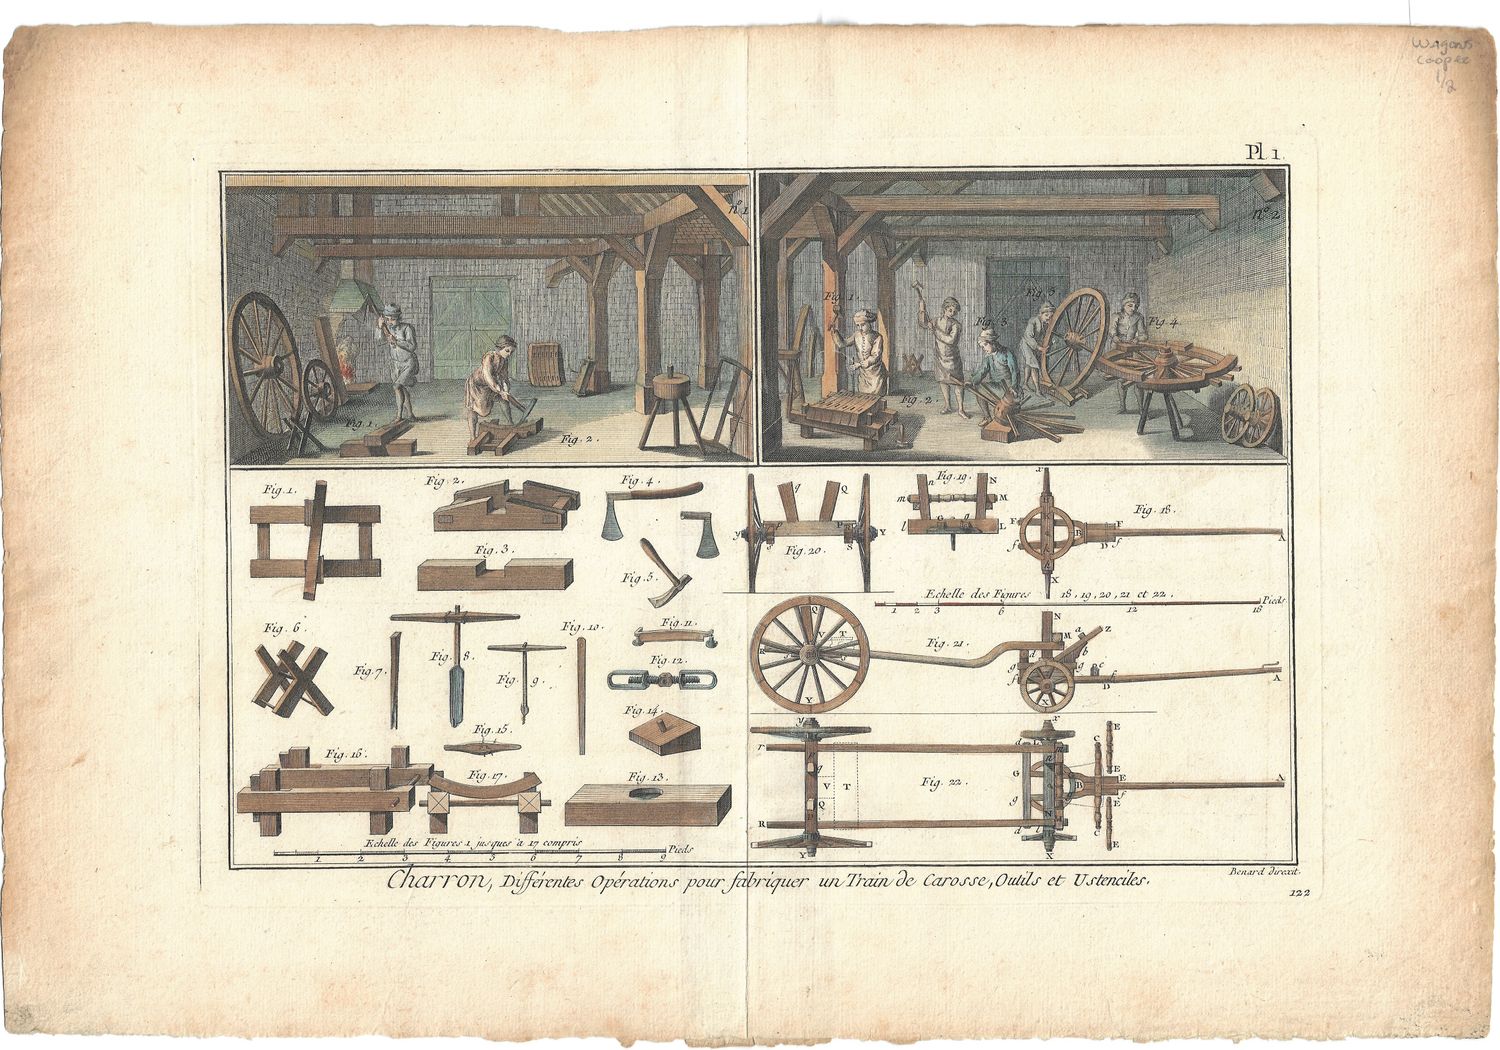 Wagons
Cooper
1/2
Pl. 1.
nº 1
nº 2
Fig. 1.
Fig. 2.
Fig. 1.
Fig. 2.
Fig. 3.
Fig. 3.
Fig. 4.
Fig. 1.
Fig. 2.
Fig. 3.
Fig. 4.
Fig. 5.
Fig. 6.
Fig. 7.
Fig. 8.
Fig. 9.
Fig. 10.
Fig. 11.
Fig. 12.
Fig. 14.
Fig. 15.
Fig. 16.
Fig. 17.
Fig. 13.
Echelle des Figures 1 jusques à 17 compris
1 2 3 4 5 6 7 8 9 Pieds
q Q
y p P Y
s S
Fig. 20.
Fig. 19.
n N
m M
l L
Fig. 18.
x
H
F F
B
f D f
h
X
A
Echelle des Figures 18, 19, 20, 21 et 22.
1 2 3 6 12 18 Pieds
Q
V T
R
Y
Fig. 21.
N
M a Z
d b
g g e
f D
X
A
y
r
q
V T
Q
R
Y
Fig. 22.
x
d L m
G
g
B
E
C
E
E
f
A
E
C
E
N
d l M
X
Charron, Différentes Opérations pour fabriquer un Train de Carosse, Outils et Ustenciles.
Benard direxit.
122